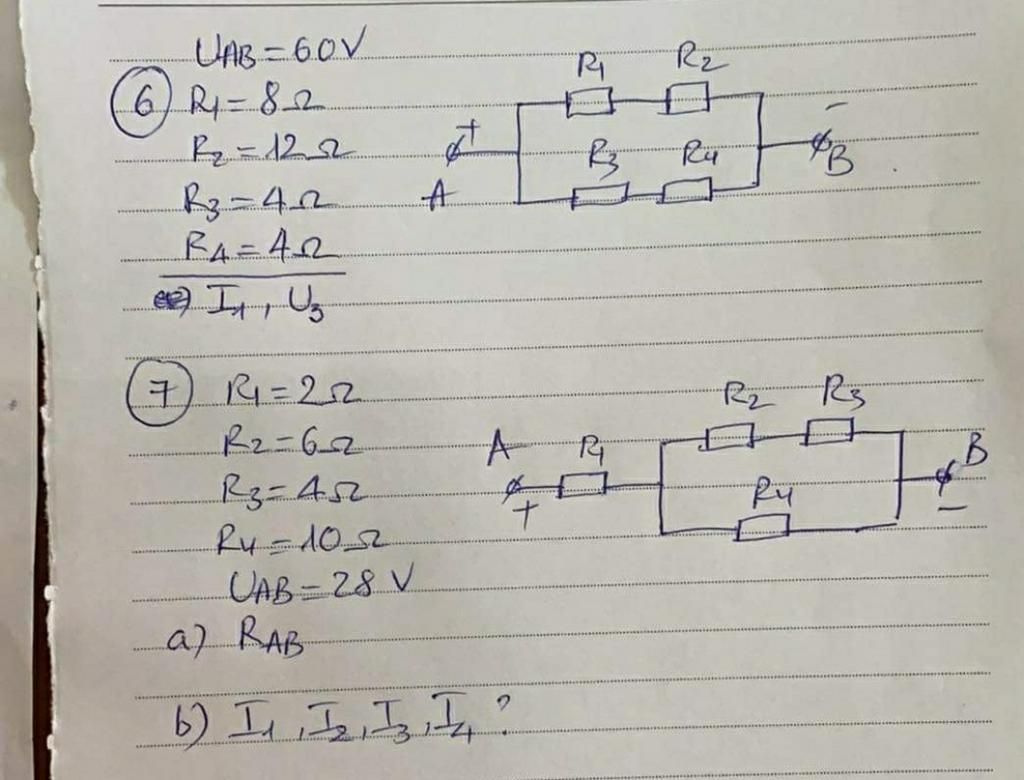 UAB = 60V
6 R1 = 8Ω
R2 = 12Ω
R3 = 4Ω
R4 = 4Ω
I1, U3
R1 R2
+ -
A R3 R4 B
7 R1 = 2Ω
R2 = 6Ω
R3 = 4Ω
R4 = 10Ω
UAB = 28 V
a) RAB
b) I1, I2, I3, I4 ?
R2 R3
A R1 B
+ R4 -